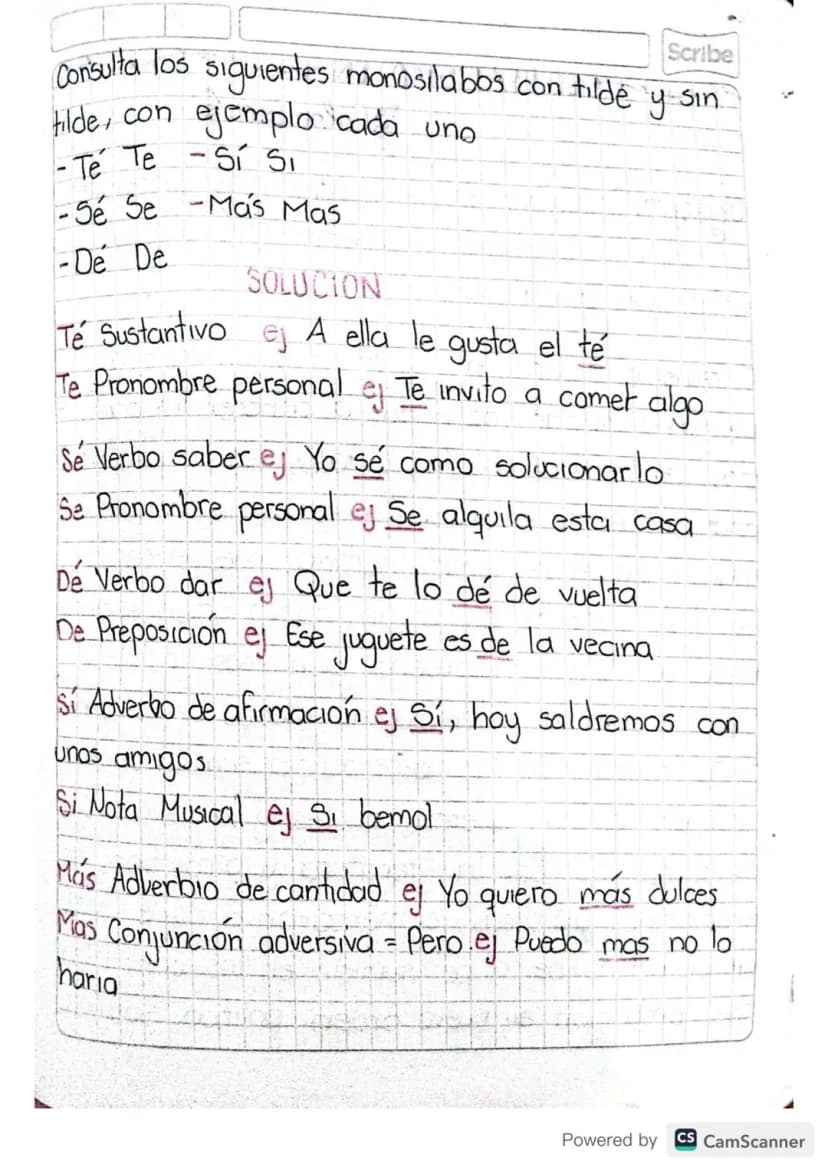 Scribe
Consulta los siguientes monosilabos con tilde y sin
tilde, con ejemplo cada uno
- Té Te - Sí Si
- Sé Se - Más Mas
- Dé De
SOLUCION
Té Sustantivo ej A ella le gusta el té
Te Pronombre personal ej Te invito a comer algo
Sé Verbo saber ej Yo sé como solucionarlo
Se Pronombre personal ej Se alquila esta casa
Dé Verbo dar ej Que te lo dé de vuelta
De Preposición ej Ese juguete es de la vecina
Sí Adverbo de afirmación ej Sí, hoy saldremos con
unos amigos
Si Nota Musical ej Si bemol
Más Adverbio de cantidad ej Yo quiero más dulces
Mas Conjunción adversiva = Pero ej Puedo mas no lo
haria
Powered by CS CamScanner